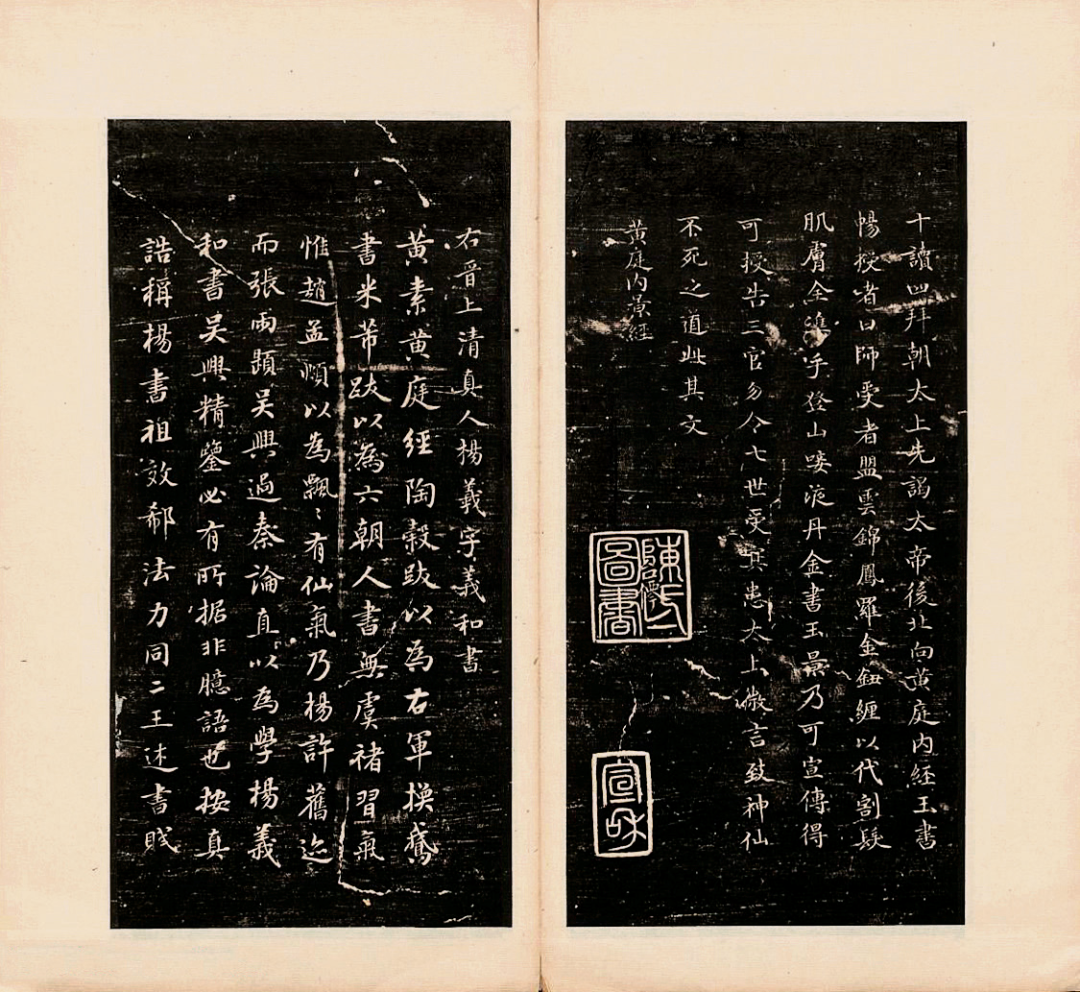 十讀四拜朝太上先謁太帝後北向黃庭内經玉書
暢授者曰師受者盟雲錦鳳羅金鈕纏以代割髮
肌膚全攜手登山嗼液丹金書玉景乃可宣傳得
可授告三官勿令七世受冥患太上微言致神仙
不死之道此其文
黃庭内景經
陳氏圖書
宣和
右晉上清真人楊羲字羲和書
黃素黃庭經陶穀跋以為右軍換鵞
書米芾跋以為六朝人書無虞褚習氣
惟趙孟頫以為飄〻有仙氣乃楊許舊迹
而張雨題吳興過秦論直以為學楊羲
和書吳興精鑒必有所据非臆語也按真
誥稱楊書祖效郗法力同二王述書賦